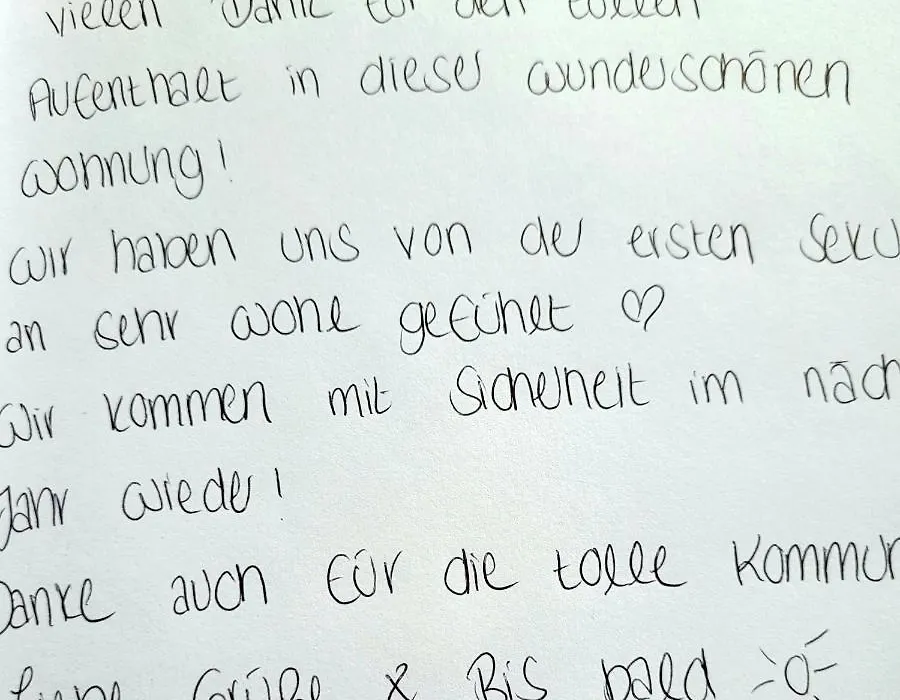 vielen Dank für den tollen
Aufenthalt in dieser wunderschönen
Wohnung!
Wir haben uns von der ersten Seku
an sehr wohl gefühlt ♡
Wir kommen mit Sicherheit im näch
Jahr wieder!
Danke auch für die tolle Kommun
Liebe Grüße & Bis bald